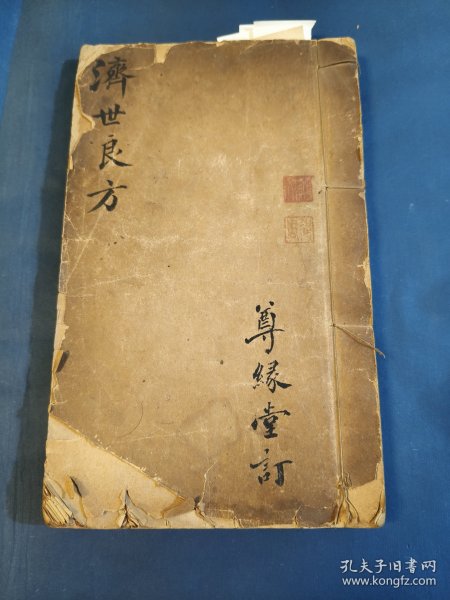 濟世良方
尊緣堂訂
孔夫子旧书网
www.kongfz.com